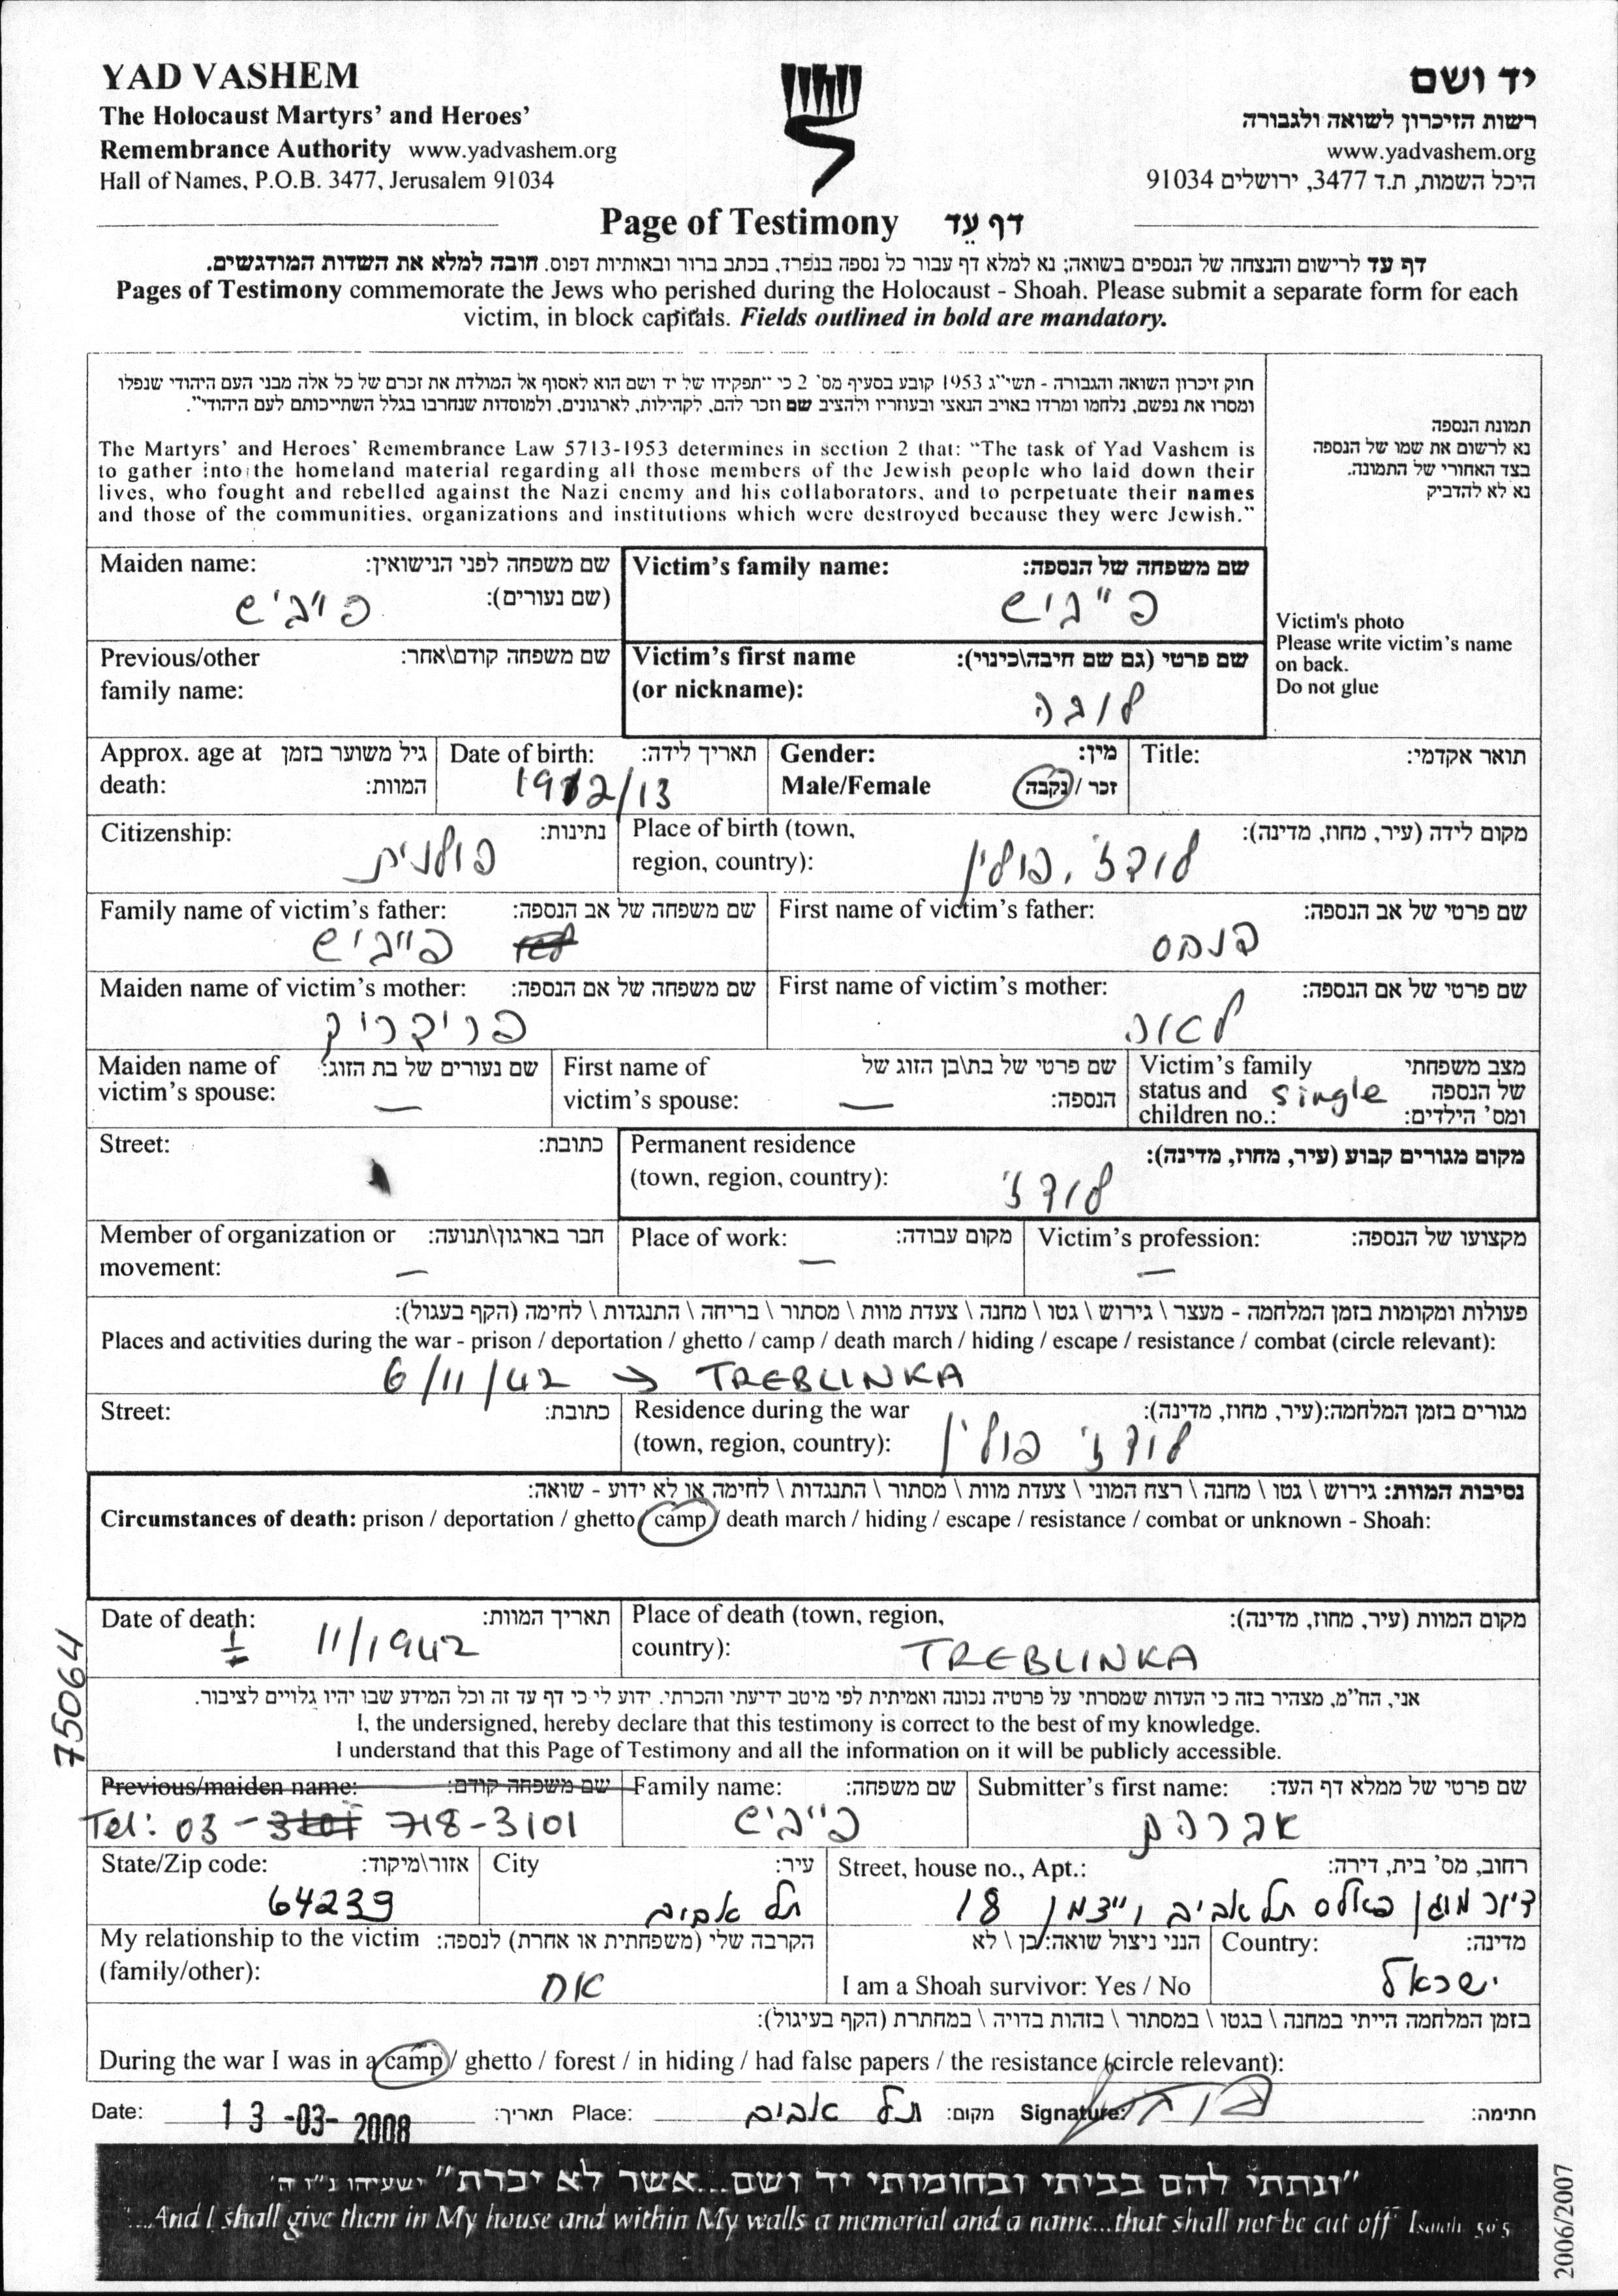 YAD VASHEM
The Holocaust Martyrs' and Heroes'
Remembrance Authority www.yadvashem.org
Hall of Names, P.O.B. 3477, Jerusalem 91034
יד ושם
רשות הזיכרון לשואה ולגבורה
www.yadvashem.org
היכל השמות, ת.ד 3477, ירושלים 91034
Page of Testimony דף עֵד
דף עד לרישום והנצחה של הנספים בשואה; נא למלא דף עבור כל נספה בנפרד, בכתב ברור ובאותיות דפוס. חובה למלא את השדות המודגשים.
Pages of Testimony commemorate the Jews who perished during the Holocaust - Shoah. Please submit a separate form for each
victim, in block capitals. Fields outlined in bold are mandatory.
חוק זיכרון השואה והגבורה - תשי"ג 1953 קובע בסעיף מס' 2 כי "תפקידו של יד ושם הוא לאסוף אל המולדת את זכרם של כל אלה מבני העם היהודי שנפלו
ומסרו את נפשם, נלחמו ומרדו באויב הנאצי ובעוזריו ולהציב שם וזכר להם, לקהילות, לארגונים, ולמוסדות שנחרבו בגלל השתייכותם לעם היהודי".
The Martyrs' and Heroes' Remembrance Law 5713-1953 determines in section 2 that: "The task of Yad Vashem is
to gather into the homeland material regarding all those members of the Jewish people who laid down their
lives, who fought and rebelled against the Nazi enemy and his collaborators, and to perpetuate their names
and those of the communities, organizations and institutions which were destroyed because they were Jewish."
תמונת הנספה
נא לרשום את שמו של הנספה
בצד האחורי של התמונה.
נא לא להדביק
Victim's photo
Please write victim's name
on back.
Do not glue
Maiden name: שם משפחה לפני הנישואין:
(שם נעורים):
פייביש
Victim's family name: שם משפחה של הנספה:
פייביש
Previous/other שם משפחה קודם\אחר:
family name:
Victim's first name שם פרטי (גם שם חיבה\כינוי):
(or nickname):
לובה
Approx. age at גיל משוער בזמן
death: המוות:
Date of birth: תאריך לידה:
1912/13
Gender: מין:
Male/Female זכר / נקבה
Title: תואר אקדמי:
Citizenship: נתינות:
פולנית
Place of birth (town, מקום לידה (עיר, מחוז, מדינה):
region, country):
לודז', פולין
Family name of victim's father: שם משפחה של אב הנספה:
פייביש
First name of victim's father: שם פרטי של אב הנספה:
פנחס
Maiden name of victim's mother: שם משפחה של אם הנספה:
First name of victim's mother: שם פרטי של אם הנספה:
לאה
Maiden name of שם נעורים של בת הזוג:
victim's spouse: —
First name of שם פרטי של בת\בן הזוג של
victim's spouse: — הנספה:
Victim's family מצב משפחתי
status and single של הנספה
children no.: ומס' הילדים:
Street: כתובת:
Permanent residence מקום מגורים קבוע (עיר, מחוז, מדינה):
(town, region, country):
לודז'
Member of organization or חבר בארגון\תנועה:
movement: —
Place of work: מקום עבודה:
—
Victim's profession: מקצועו של הנספה:
—
פעולות ומקומות בזמן המלחמה - מעצר \ גירוש \ גטו \ מחנה \ צעדת מוות \ מסתור \ בריחה \ התנגדות \ לחימה (הקף בעגול):
Places and activities during the war - prison / deportation / ghetto / camp / death march / hiding / escape / resistance / combat (circle relevant):
6/11/42 → TREBLINKA
Street: כתובת:
Residence during the war מגורים בזמן המלחמה:(עיר, מחוז, מדינה):
(town, region, country):
לודז' פולין
נסיבות המוות: גירוש \ גטו \ מחנה \ רצח המוני \ צעדת מוות \ מסתור \ התנגדות \ לחימה או לא ידוע - שואה:
Circumstances of death: prison / deportation / ghetto / camp / death march / hiding / escape / resistance / combat or unknown - Shoah:
Date of death: תאריך המוות:
± 11/1942
Place of death (town, region, מקום המוות (עיר, מחוז, מדינה):
country):
TREBLINKA
75064
אני, הח"מ, מצהיר בזה כי העדות שמסרתי על פרטיה נכונה ואמיתית לפי מיטב ידיעתי והכרתי. ידוע לי כי דף עד זה וכל המידע שבו יהיו גלויים לציבור.
I, the undersigned, hereby declare that this testimony is correct to the best of my knowledge.
I understand that this Page of Testimony and all the information on it will be publicly accessible.
Previous/maiden name: שם משפחה קודם:
Tel: 03 - 3101 718-3101
Family name: שם משפחה:
פייביש
Submitter's first name: שם פרטי של ממלא דף העד:
אברהם
State/Zip code: אזור\מיקוד:
64239
City עיר:
תל אביב
Street, house no., Apt.: רחוב, מס' בית, דירה:
דיור מוגן פאלס תל אביב וייצמן 18
My relationship to the victim הקרבה שלי (משפחתית או אחרת) לנספה:
(family/other):
אח
הנני ניצול שואה: כן \ לא
I am a Shoah survivor: Yes / No
Country: מדינה:
ישראל
בזמן המלחמה הייתי במחנה \ בגטו \ במסתור \ בזהות בדויה \ במחתרת (הקף בעיגול):
During the war I was in a camp / ghetto / forest / in hiding / had false papers / the resistance (circle relevant):
Date: 13 -03- 2008 תאריך: Place: תל אביב מקום: Signature: חתימה:
"ונתתי להם בביתי ובחומותי יד ושם...אשר לא יכרת" ישעיהו נ"ו ה'
"...And I shall give them in My house and within My walls a memorial and a name...that shall not be cut off" Isaiah 56:5
2006/2007